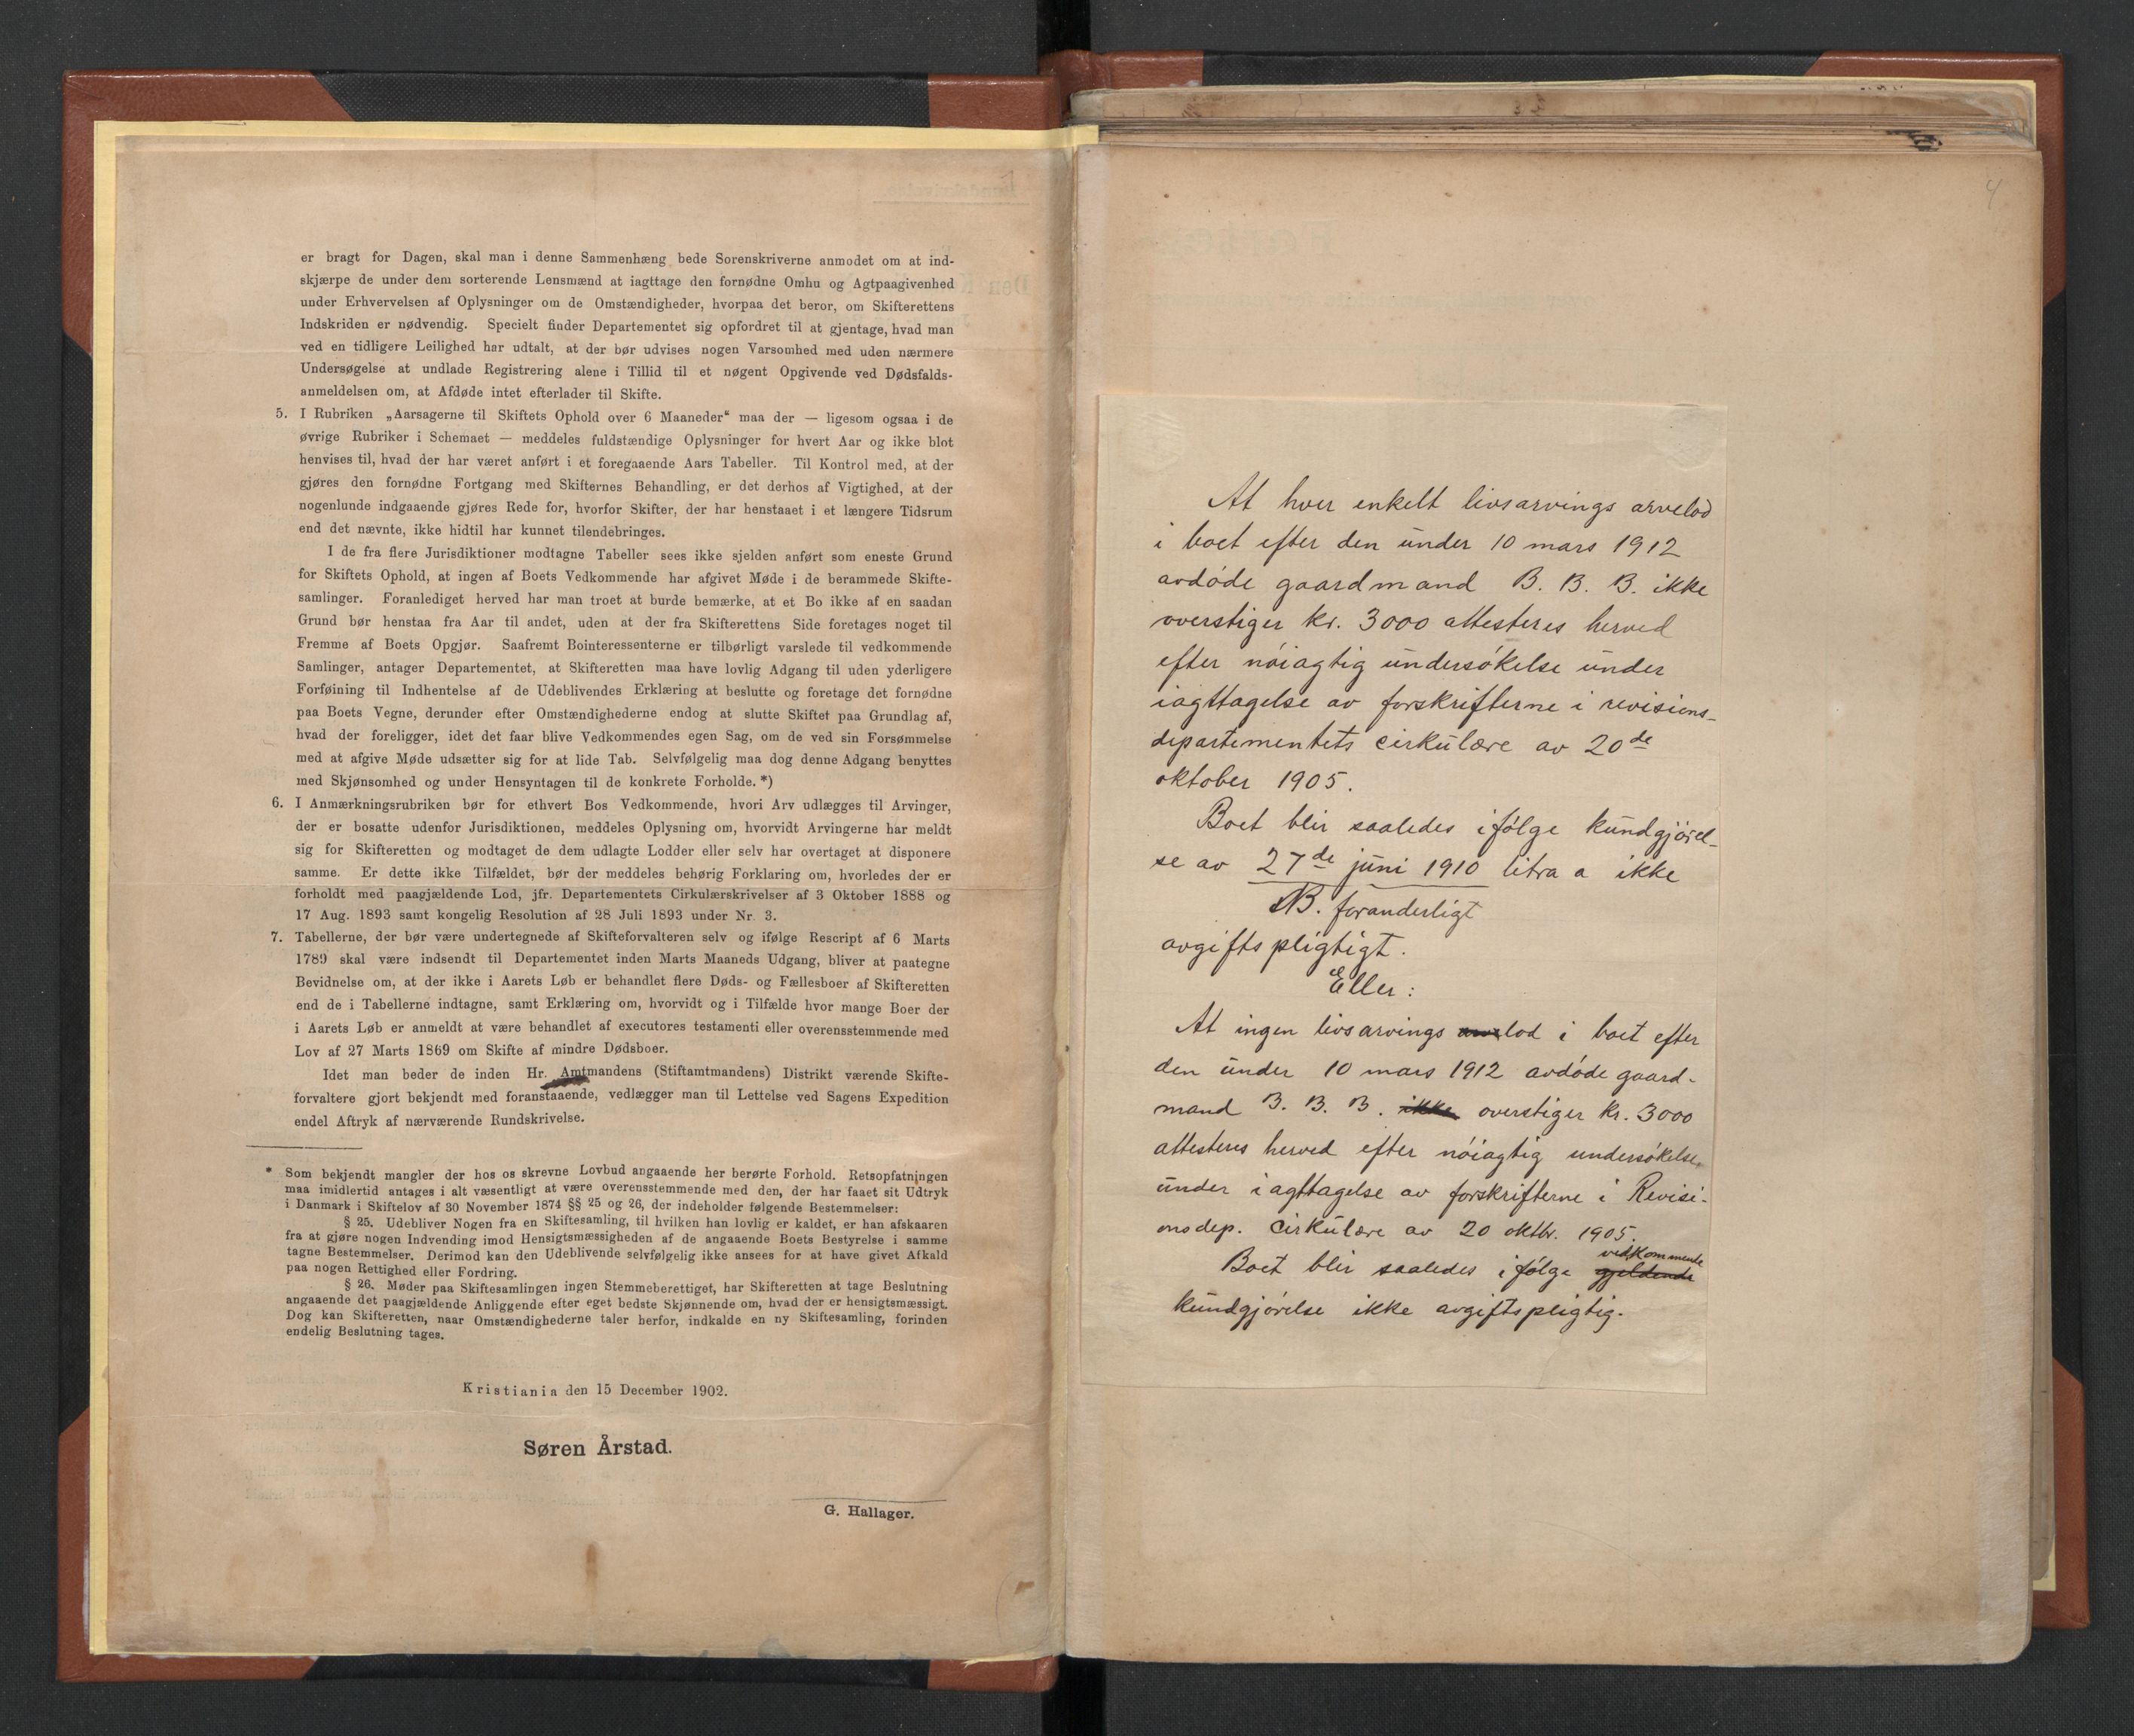 er bragt for Dagen, skal man i denne Sammenhæng bede Sorenskriverne anmodet om at ind-
skjærpe de under dem sorterende Lensmænd at iagttage den fornødne Omhu og Agtpaagivenhed
under Erhvervelsen af Oplysninger om de Omstændigheder, hvorpaa det beror, om Skifterettens
Indskriden er nødvendig. Specielt finder Departementet sig opfordret til at gjentage, hvad man
ved en tidligere Leilighed har udtalt, at der bør udvises nogen Varsomhed med uden nærmere
Undersøgelse at undlade Registrering alene i Tillid til et nøgent Opgivende ved Dødsfalds-
anmeldelsen om, at Afdøde intet efterlader til Skifte.
5. I Rubriken „Aarsagerne til Skiftets Ophold over 6 Maaneder“ maa der — ligesom ogsaa i de
øvrige Rubriker i Schemaet — meddeles fuldstændige Oplysninger for hvert Aar og ikke blot
henvises til, hvad der har været anført i et foregaaende Aars Tabeller. Til Kontrol med, at der
gjøres den fornødne Fortgang med Skifternes Behandling, er det derhos af Vigtighed, at der
nogenlunde indgaaende gjøres Rede for, hvorfor Skifter, der har henstaaet i et længere Tidsrum
end det nævnte, ikke hidtil har kunnet tilendebringes.
I de fra flere Jurisdiktioner modtagne Tabeller sees ikke sjelden anført som eneste Grund
for Skiftets Ophold, at ingen af Boets Vedkommende har afgivet Møde i de berammede Skifte-
samlinger. Foranlediget herved har man troet at burde bemærke, at et Bo ikke af en saadan
Grund bør henstaa fra Aar til andet, uden at der fra Skifterettens Side foretages noget til
Fremme af Boets Opgjør. Saafremt Bointeressenterne er tilbørligt varslede til vedkommende
Samlinger, antager Departementet, at Skifteretten maa have lovlig Adgang til uden yderligere
Forføining til Indhentelse af de Udeblivendes Erklæring at beslutte og foretage det fornødne
paa Boets Vegne, derunder efter Omstændighederne endog at slutte Skiftet paa Grundlag af,
hvad der foreligger, idet det faar blive Vedkommendes egen Sag, om de ved sin Forsømmelse
med at afgive Møde udsætter sig for at lide Tab. Selvfølgelig maa dog denne Adgang benyttes
med Skjønsomhed og under Hensyntagen til de konkrete Forholde. *)
6. I Anmærkningsrubriken bør for ethvert Bos Vedkommende, hvori Arv udlægges til Arvinger,
der er bosatte udenfor Jurisdiktionen, meddeles Oplysning om, hvorvidt Arvingerne har meldt
sig for Skifteretten og modtaget de dem udlagte Lodder eller selv har overtaget at disponere
samme. Er dette ikke Tilfældet, bør der meddeles behørig Forklaring om, hvorledes der er
forholdt med paagjældende Lod, jfr. Departementets Cirkulærskrivelser af 3 Oktober 1888 og
17 Aug. 1893 samt kongelig Resolution af 28 Juli 1893 under Nr. 3.
7. Tabellerne, der bør være undertegnede af Skifteforvalteren selv og ifølge Rescript af 6 Marts
1789 skal være indsendt til Departementet inden Marts Maaneds Udgang, bliver at paategne
Bevidnelse om, at der ikke i Aarets Løb er behandlet flere Døds- og Fællesboer af Skifteretten
end de i Tabellerne indtagne, samt Erklæring om, hvorvidt og i Tilfælde hvor mange Boer der
i Aarets Løb er anmeldt at være behandlet af executores testamenti eller overensstemmende med
Lov af 27 Marts 1869 om Skifte af mindre Dødsboer.
Idet man beder de inden Hr. Amtmandens (Stiftamtmandens) Distrikt værende Skifte-
forvaltere gjort bekjendt med foranstaaende, vedlægger man til Lettelse ved Sagens Expedition
endel Aftryk af nærværende Rundskrivelse.
* Som bekjendt mangler der hos os skrevne Lovbud angaaende her berørte Forhold. Retsopfatningen
maa imidlertid antages i alt væsentligt at være overensstemmende med den, der har faaet sit Udtryk
i Danmark i Skiftelov af 30 November 1874 §§ 25 og 26, der indeholder følgende Bestemmelser:
§ 25. Udebliver Nogen fra en Skiftesamling, til hvilken han lovlig er kaldet, er han afskaaren
fra at gjøre nogen Indvending imod Hensigtsmæssigheden af de angaaende Boets Bestyrelse i samme
tagne Bestemmelser. Derimod kan den Udeblivende selvfølgelig ikke ansees for at have givet Afkald
paa nogen Rettighed eller Fordring.
§ 26. Møder paa Skiftesamlingen ingen Stemmeberettiget, har Skifteretten at tage Beslutning
angaaende det paagjældende Anliggende efter eget bedste Skjønnende om, hvad der er hensigtsmæssigt.
Dog kan Skifteretten, naar Omstændighederne taler herfor, indkalde en ny Skiftesamling, forinden
endelig Beslutning tages.
Kristiania den 15 December 1902.
Søren Årstad.
G. Hallager.
4
At hver enkelt livsarvings arvelod
i boet efter den under 10 mars 1912
avdøde gaardmand B. B. B. ikke
overstiger kr. 3000 attesteres herved
efter nøiagtig undersøkelse under
iagttagelse av forskrifterne i revisions-
departementets cirkulære av 20de
oktober 1905.
Boet blir saaledes ifølge kundgjørel-
se av 27de juni 1910 litra a ikke
NB. foranderligt
avgiftspligtigt.
Eller:
At ingen livsarvings arvelod i boet efter
den under 10 mars 1912 avdøde gaard-
mand B. B. B. ikke overstiger kr. 3000
attesteres herved efter nøiagtig undersøkelse
under iagttagelse av forskrifterne i Revisi-
onsdep. cirkulære av 20 oktbr. 1905.
vedkommende
Boet blir saaledes ifølge gjeldende
kundgjørelse ikke avgiftspligtig.